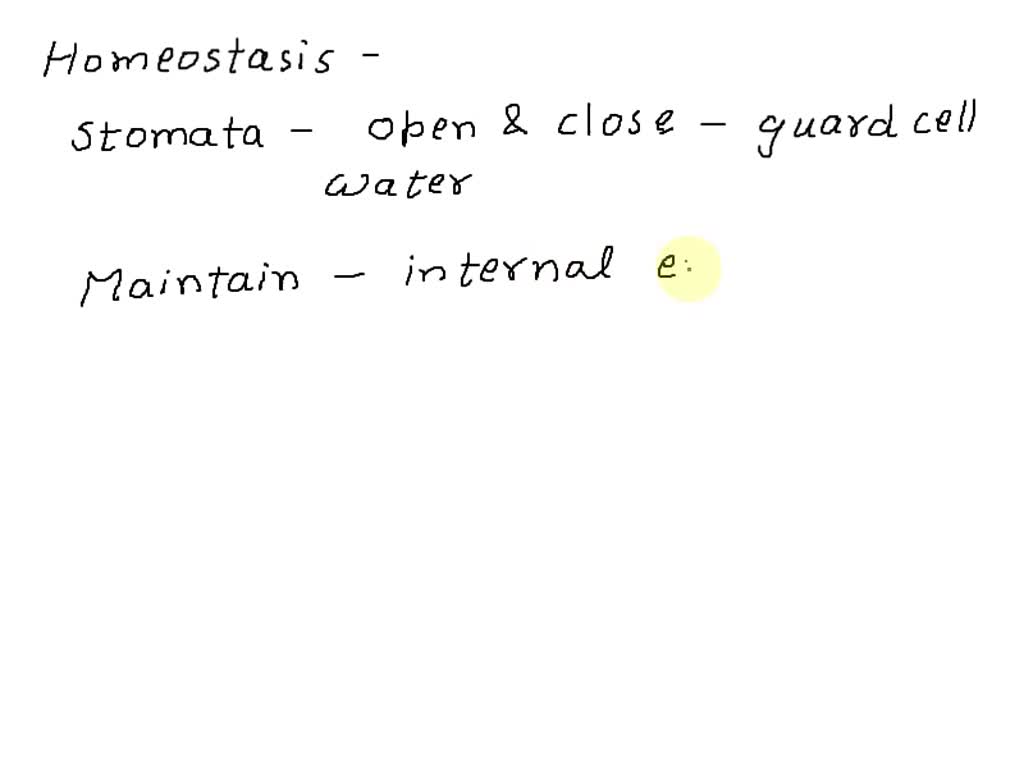 Homeostasis -
Stomata - open & close - guard cell
water
Maintain - internal e